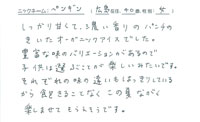 ニックネーム: ペンギン ( 広島 県 40 歳 女 )
しっかり甘くて、3種い香りのパンチの
きいたオーガニックアイスでした。
豊富な味のバリエーションがあるので
子供は選ぶことが楽しいみたいです。
それぞれの味の違いもはっきりしている
から 飽きることなく この夏 ながく
楽しませてもらえそうです。